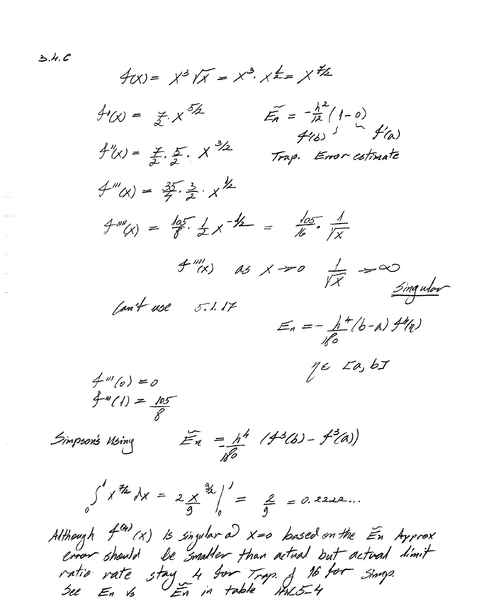 3.4.C
f(x) = x³√x = x³ · x^(1/2) = x^(7/2)
f'(x) = 7/2 · x^(5/2)    Ẽn = -h²/12 (1-0)
f'(b)    f'(a)
f''(x) = 7/2 · 5/2 · x^(3/2)    Trap. Error estimate
f'''(x) = 35/4 · 3/2 · x^(1/2)
f''''(x) = 105/8 · 1/2 x^(-1/2) = 105/16 · 1/√x
f''''(x) as x→0 1/√x → ∞
Singular
Can't use 5.1.17
En = - h⁴/180 (b-a) f⁴(η)
η ∈ [a, b]
f'''(0) = 0
f'''(1) = 105/8
Simpson's Using    Ẽn = -h⁴/180 (f³(b) - f³(a))
∫₀¹ x^(7/2) dx = 2/9 x^(9/2) |₀¹ = 2/9 = 0.2222...
Although f⁽⁴⁾(x) is singular a) x=0 based on the Ẽn Approx
error should be smaller than actual but actual limit
ratio rate stay 4 for Trap. & 16 for Simp.
See En vs Ẽn in table 5-4